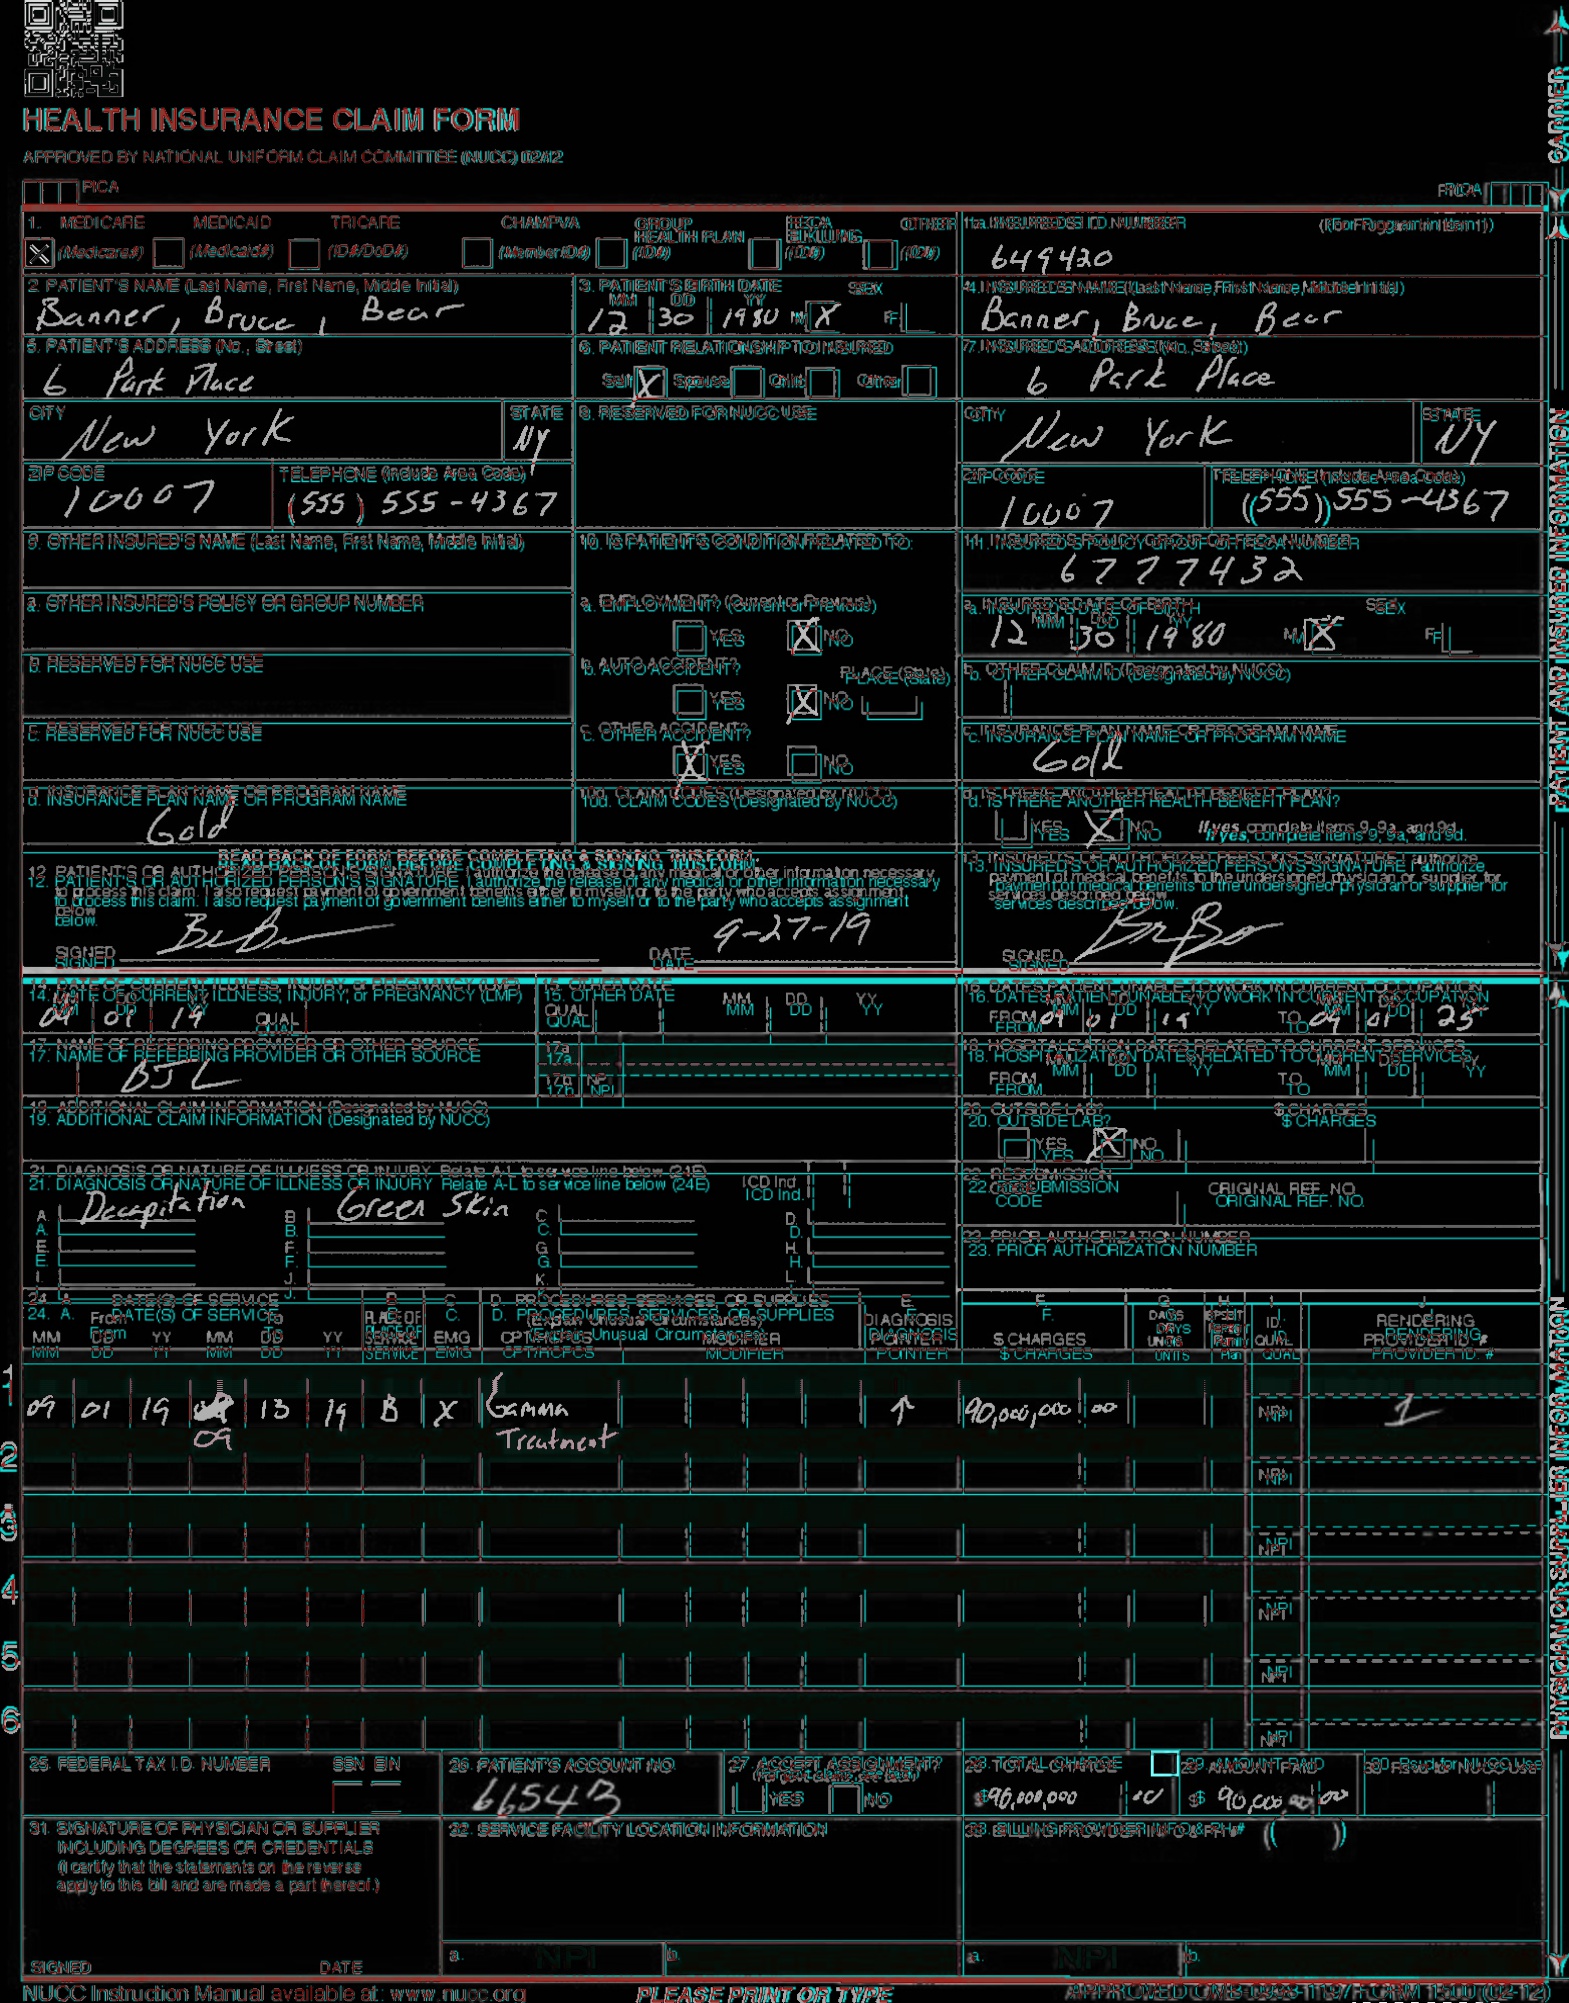 HEALTH INSURANCE CLAIM FORM
APPROVED BY NATIONAL UNIFORM CLAIM COMMITTEE (NUCC) 02/12
PICA
PICA
CARRIER
1. MEDICARE MEDICAID TRICARE CHAMPVA GROUP HEALTH PLAN FECA BLK LUNG OTHER
(Medicare#) (Medicaid#) (ID#/DoD#) (Member ID#) (ID#) (ID#) (ID#)
1a. INSURED'S I.D. NUMBER (For Program in Item 1)
649420
2. PATIENT'S NAME (Last Name, First Name, Middle Initial)
Banner, Bruce, Bear
3. PATIENT'S BIRTH DATE SEX
MM DD YY
12 30 1980 M X F
4. INSURED'S NAME (Last Name, First Name, Middle Initial)
Banner, Bruce, Bear
5. PATIENT'S ADDRESS (No., Street)
6 Park Place
6. PATIENT RELATIONSHIP TO INSURED
Self X Spouse Child Other
7. INSURED'S ADDRESS (No., Street)
6 Park Place
CITY STATE
New York NY
8. RESERVED FOR NUCC USE
CITY STATE
New York NY
ZIP CODE TELEPHONE (Include Area Code)
10007 (555) 555-4367
ZIP CODE TELEPHONE (Include Area Code)
10007 (555) 555-4367
9. OTHER INSURED'S NAME (Last Name, First Name, Middle Initial)
10. IS PATIENT'S CONDITION RELATED TO:
11. INSURED'S POLICY GROUP OR FECA NUMBER
6777432
a. OTHER INSURED'S POLICY OR GROUP NUMBER
a. EMPLOYMENT? (Current or Previous)
YES X NO
a. INSURED'S DATE OF BIRTH SEX
MM DD YY
12 30 1980 M X F
b. RESERVED FOR NUCC USE
b. AUTO ACCIDENT? PLACE (State)
YES X NO
b. OTHER CLAIM ID (Designated by NUCC)
c. RESERVED FOR NUCC USE
c. OTHER ACCIDENT?
X YES NO
c. INSURANCE PLAN NAME OR PROGRAM NAME
Gold
d. INSURANCE PLAN NAME OR PROGRAM NAME
Gold
10d. CLAIM CODES (Designated by NUCC)
d. IS THERE ANOTHER HEALTH BENEFIT PLAN?
YES X NO If yes, complete items 9, 9a, and 9d.
READ BACK OF FORM BEFORE COMPLETING & SIGNING THIS FORM.
12. PATIENT'S OR AUTHORIZED PERSON'S SIGNATURE I authorize the release of any medical or other information necessary
to process this claim. I also request payment of government benefits either to myself or to the party who accepts assignment
below.
SIGNED DATE 9-27-19
13. INSURED'S OR AUTHORIZED PERSON'S SIGNATURE I authorize
payment of medical benefits to the undersigned physician or supplier for
services described below.
SIGNED
PATIENT AND INSURED INFORMATION
14. DATE OF CURRENT ILLNESS, INJURY, or PREGNANCY (LMP)
MM DD YY
09 01 19 QUAL.
15. OTHER DATE MM DD YY
QUAL.
16. DATES PATIENT UNABLE TO WORK IN CURRENT OCCUPATION
MM DD YY MM DD YY
FROM 09 01 19 TO 09 01 25
17. NAME OF REFERRING PROVIDER OR OTHER SOURCE
BJL
17a.
17b. NPI
18. HOSPITALIZATION DATES RELATED TO CURRENT SERVICES
MM DD YY MM DD YY
FROM TO
19. ADDITIONAL CLAIM INFORMATION (Designated by NUCC)
20. OUTSIDE LAB? $ CHARGES
YES X NO
21. DIAGNOSIS OR NATURE OF ILLNESS OR INJURY Relate A-L to service line below (24E) ICD Ind.
A. Decapitation B. Green Skin C. D.
E. F. G. H.
I. J. K. L.
22. RESUBMISSION CODE ORIGINAL REF. NO.
23. PRIOR AUTHORIZATION NUMBER
24. A. DATE(S) OF SERVICE B. C. D. PROCEDURES, SERVICES, OR SUPPLIES E. F. G. H. I. J.
From To PLACE OF SERVICE EMG (Explain Unusual Circumstances) DIAGNOSIS POINTER $ CHARGES DAYS UNITS ID. QUAL. RENDERING PROVIDER ID. #
MM DD YY MM DD YY CPT/HCPCS MODIFIER
1 09 01 19 09 13 19 B X Gamma Treatment ↑ 90,000,000 00 NPI 1
2 NPI
3 NPI
4 NPI
5 NPI
6 NPI
25. FEDERAL TAX I.D. NUMBER SSN EIN
26. PATIENT'S ACCOUNT NO.
6654B
27. ACCEPT ASSIGNMENT?
YES NO
28. TOTAL CHARGE
$ 90,000,000 00
29. AMOUNT PAID
$ 90,000,000 00
30. Rsvd for NUCC Use
31. SIGNATURE OF PHYSICIAN OR SUPPLIER
INCLUDING DEGREES OR CREDENTIALS
(I certify that the statements on the reverse
apply to this bill and are made a part thereof.)
SIGNED DATE
32. SERVICE FACILITY LOCATION INFORMATION
a. NPI b.
33. BILLING PROVIDER INFO & PH # ( )
a. NPI b.
PHYSICIAN OR SUPPLIER INFORMATION
NUCC Instruction Manual available at: www.nucc.org
PLEASE PRINT OR TYPE
APPROVED OMB-0938-1197 FORM 1500 (02-12)